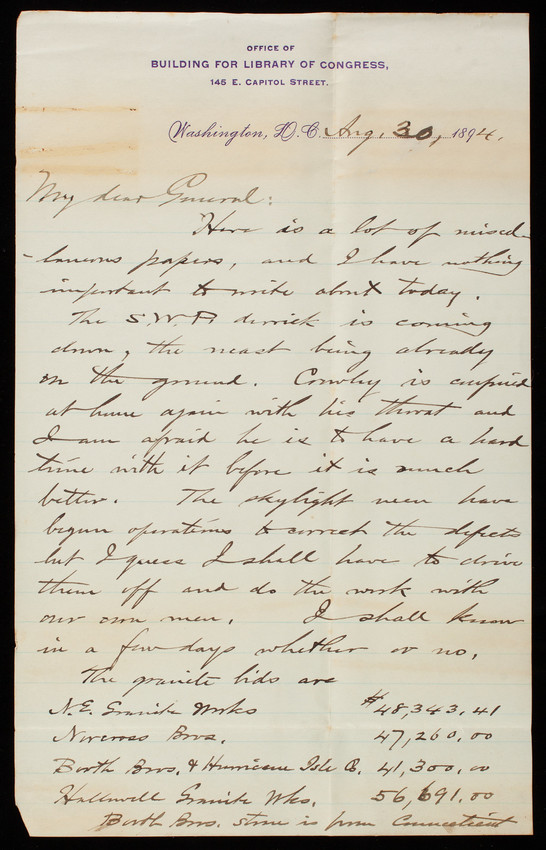 OFFICE OF
BUILDING FOR LIBRARY OF CONGRESS,
145 E. CAPITOL STREET.
Washington, D.C. Aug. 30, 1894.
My dear General:
Here is a lot of miscel-
-laneous papers, and I have nothing
important to write about today.
The S.W.P. derrick is coming
down, the mast being already
on the ground. Cowley is confined
at home again with his throat and
I am afraid he is to have a hard
time with it before it is much
better. The skylight men have
begun operations to correct the defects
but I guess I shall have to drive
them off and do the work with
our own men. I shall know
in a few days whether or no.
The granite bids are
N.E. Granite Works $48,343.41
Norcross Bros. 47,260.00
Booth Bros. & Hurricane Isle Co. 41,300.00
Hallowell Granite Wks. 56,691.00
Booth Bros. stone is from Connecticut